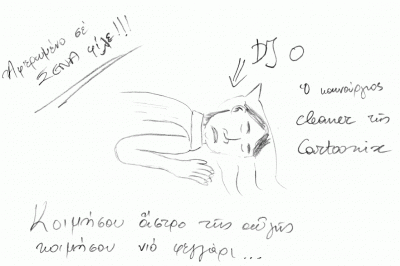 Αφιερωμένο σέ
ΣΕΝΑ φίλε!!!
DJ O
Ο καινούργιος
cleaner της
Cartoonix
Κοιμήσου άστρο της αυγής
κοιμήσου νιό φεγγάρι...